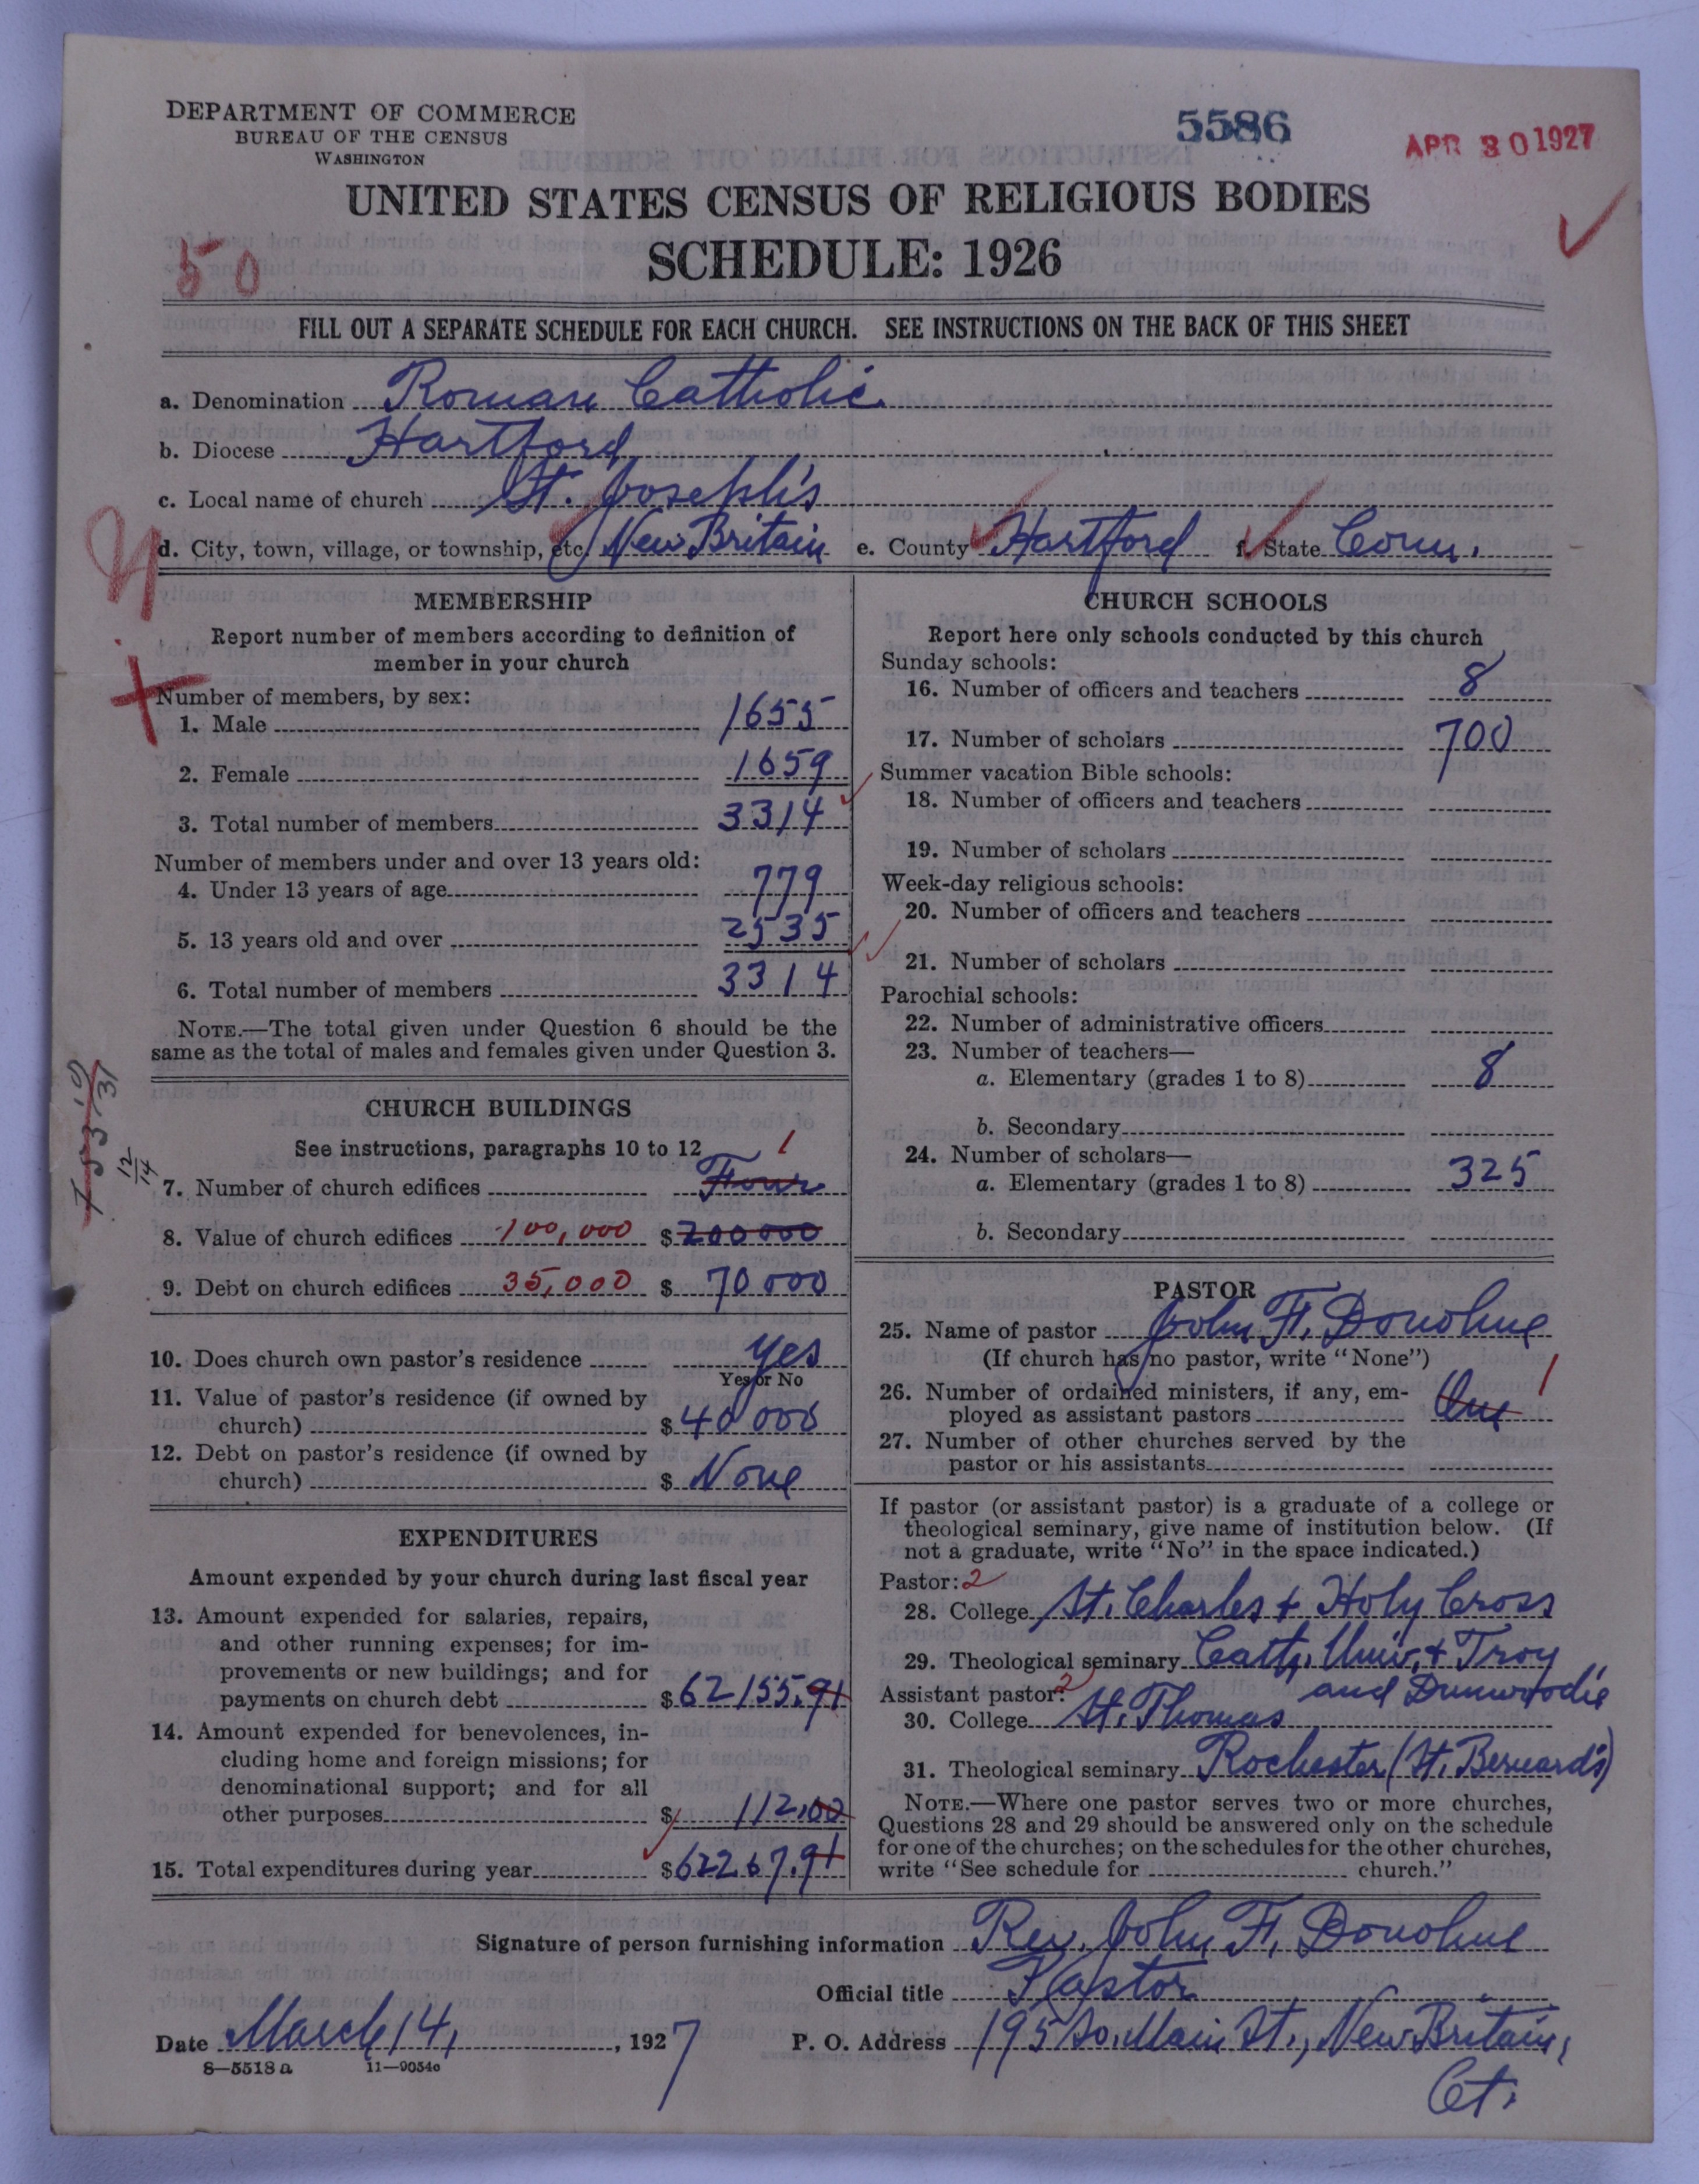 DEPARTMENT OF COMMERCE
BUREAU OF THE CENSUS
WASHINGTON
5586
APR 30 1927
UNITED STATES CENSUS OF RELIGIOUS BODIES
SCHEDULE: 1926
50
FILL OUT A SEPARATE SCHEDULE FOR EACH CHURCH. SEE INSTRUCTIONS ON THE BACK OF THIS SHEET
a. Denomination Roman Catholic
b. Diocese Hartford
c. Local name of church St. Joseph's
d. City, town, village, or township, etc. New Britain e. County Hartford f. State Conn.
MEMBERSHIP
Report number of members according to definition of
member in your church
Number of members, by sex:
1. Male 1655
2. Female 1659
3. Total number of members 3314
Number of members under and over 13 years old:
4. Under 13 years of age 779
5. 13 years old and over 2535
6. Total number of members 3314
NOTE.—The total given under Question 6 should be the
same as the total of males and females given under Question 3.
CHURCH BUILDINGS
See instructions, paragraphs 10 to 12 1
7. Number of church edifices Four
8. Value of church edifices 100,000 $ 200 000
9. Debt on church edifices 35,000 $ 70 000
12/14
10. Does church own pastor's residence Yes
Yes or No
11. Value of pastor's residence (if owned by
church) $ 40 000
12. Debt on pastor's residence (if owned by
church) $ None
EXPENDITURES
Amount expended by your church during last fiscal year
13. Amount expended for salaries, repairs,
and other running expenses; for im-
provements or new buildings; and for
payments on church debt $ 62155.91
14. Amount expended for benevolences, in-
cluding home and foreign missions; for
denominational support; and for all
other purposes $ 112.00
15. Total expenditures during year $ 62267.91
CHURCH SCHOOLS
Report here only schools conducted by this church
Sunday schools:
16. Number of officers and teachers 8
17. Number of scholars 700
Summer vacation Bible schools:
18. Number of officers and teachers
19. Number of scholars
Week-day religious schools:
20. Number of officers and teachers
21. Number of scholars
Parochial schools:
22. Number of administrative officers
23. Number of teachers—
a. Elementary (grades 1 to 8) 8
b. Secondary
24. Number of scholars—
a. Elementary (grades 1 to 8) 325
b. Secondary
PASTOR
25. Name of pastor John F. Donohue
(If church has no pastor, write "None")
26. Number of ordained ministers, if any, em-
ployed as assistant pastors One 1
27. Number of other churches served by the
pastor or his assistants
If pastor (or assistant pastor) is a graduate of a college or
theological seminary, give name of institution below. (If
not a graduate, write "No" in the space indicated.)
Pastor: 2
28. College St. Charles + Holy Cross
29. Theological seminary Cath. Univ. + Troy
and Dunwoodie
Assistant pastor: 2
30. College St. Thomas
31. Theological seminary Rochester (St. Bernard's)
NOTE.—Where one pastor serves two or more churches,
Questions 28 and 29 should be answered only on the schedule
for one of the churches; on the schedules for the other churches,
write "See schedule for church."
Signature of person furnishing information Rev. John F. Donohue
Official title Pastor
Date March 14, 1927 P. O. Address 195 So. Main St., New Britain,
Ct.
8—5518 a 11—9054c